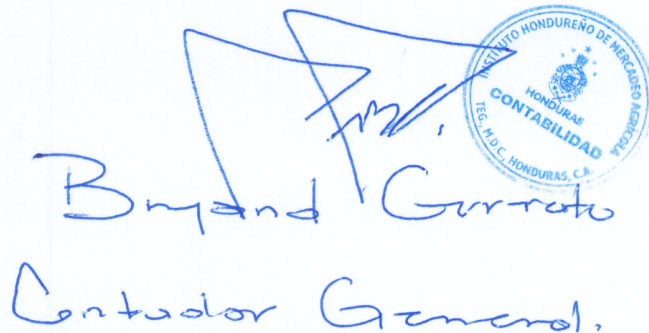 INSTITUTO HONDUREÑO DE MERCADEO AGRICOLA
HONDURAS
CONTABILIDAD
TEG., M.D.C., HONDURAS, C.A.
Bryand
Contador General.